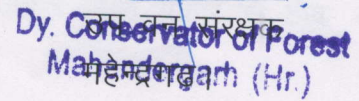 उप वन संरक्षक
Dy. Conservator of Forest
महेन्द्रगढ़।
Mahendergarh (Hr.)